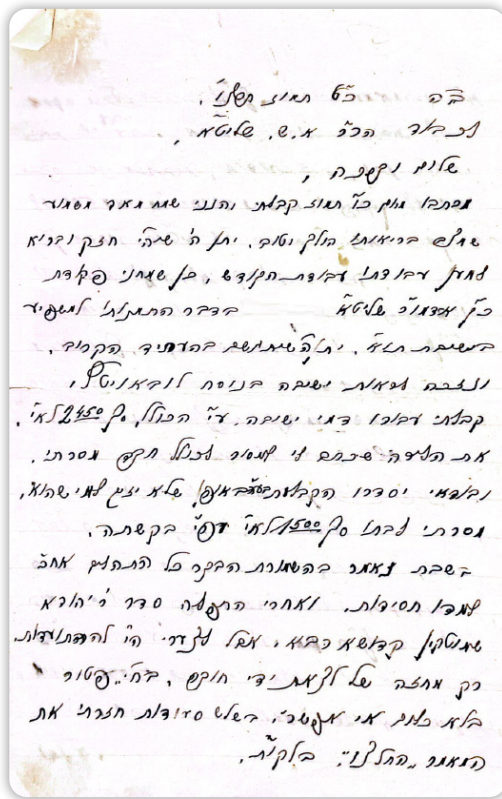 ב״ה כ״ט תמוז תשל״ו.
לכבוד הר״ר א.ש. שליט״א,
שלום וברכה,
מכתבו מיום כ״ו תמוז קבלתי והנני שמח מאד משמוע
שמצב בריאותו הולך וטוב. יתן ה׳ שיהי׳ חזק ובריא
למען עבודתו עבודת הקודש, כן שמחני פקודת
כ״ק אדמו״ר שליט״א בדבר התמנותו למשפיע
בישיבת ת״א. יתן ה׳ שיתגשם בהעתיד הקרוב.
ונזכה לראות ישיבה בנוסח ליובאוויטש.
קבלתי עבורו דמי ישיבה, ע״י הכולל, סך 2450 ל״י.
את הלירה שכתב לי למסור לכולל חב״ד מסרתי.
ובודאי יסדרו הקבלות באופן שלא יזיק למי שהוא.
מסרתי לבתו סך 1500 ל״י עפ״י בקשתה.
בשבת נאמר בהשמורת הבקר כל התהלים אח״כ
למדו חסידות. ואחרי התפלה סדר ר׳ יהודא
שמוטקין קדושא רבא, אבל לצערי הי׳ להתועדות
רק מחזה של לצאת ידי חובה, בחי׳ פטור
בלא כלום אי אפשר״. בשלש סעודות חזרתי את
המאמר ״החלצו״. בלקו״ת.